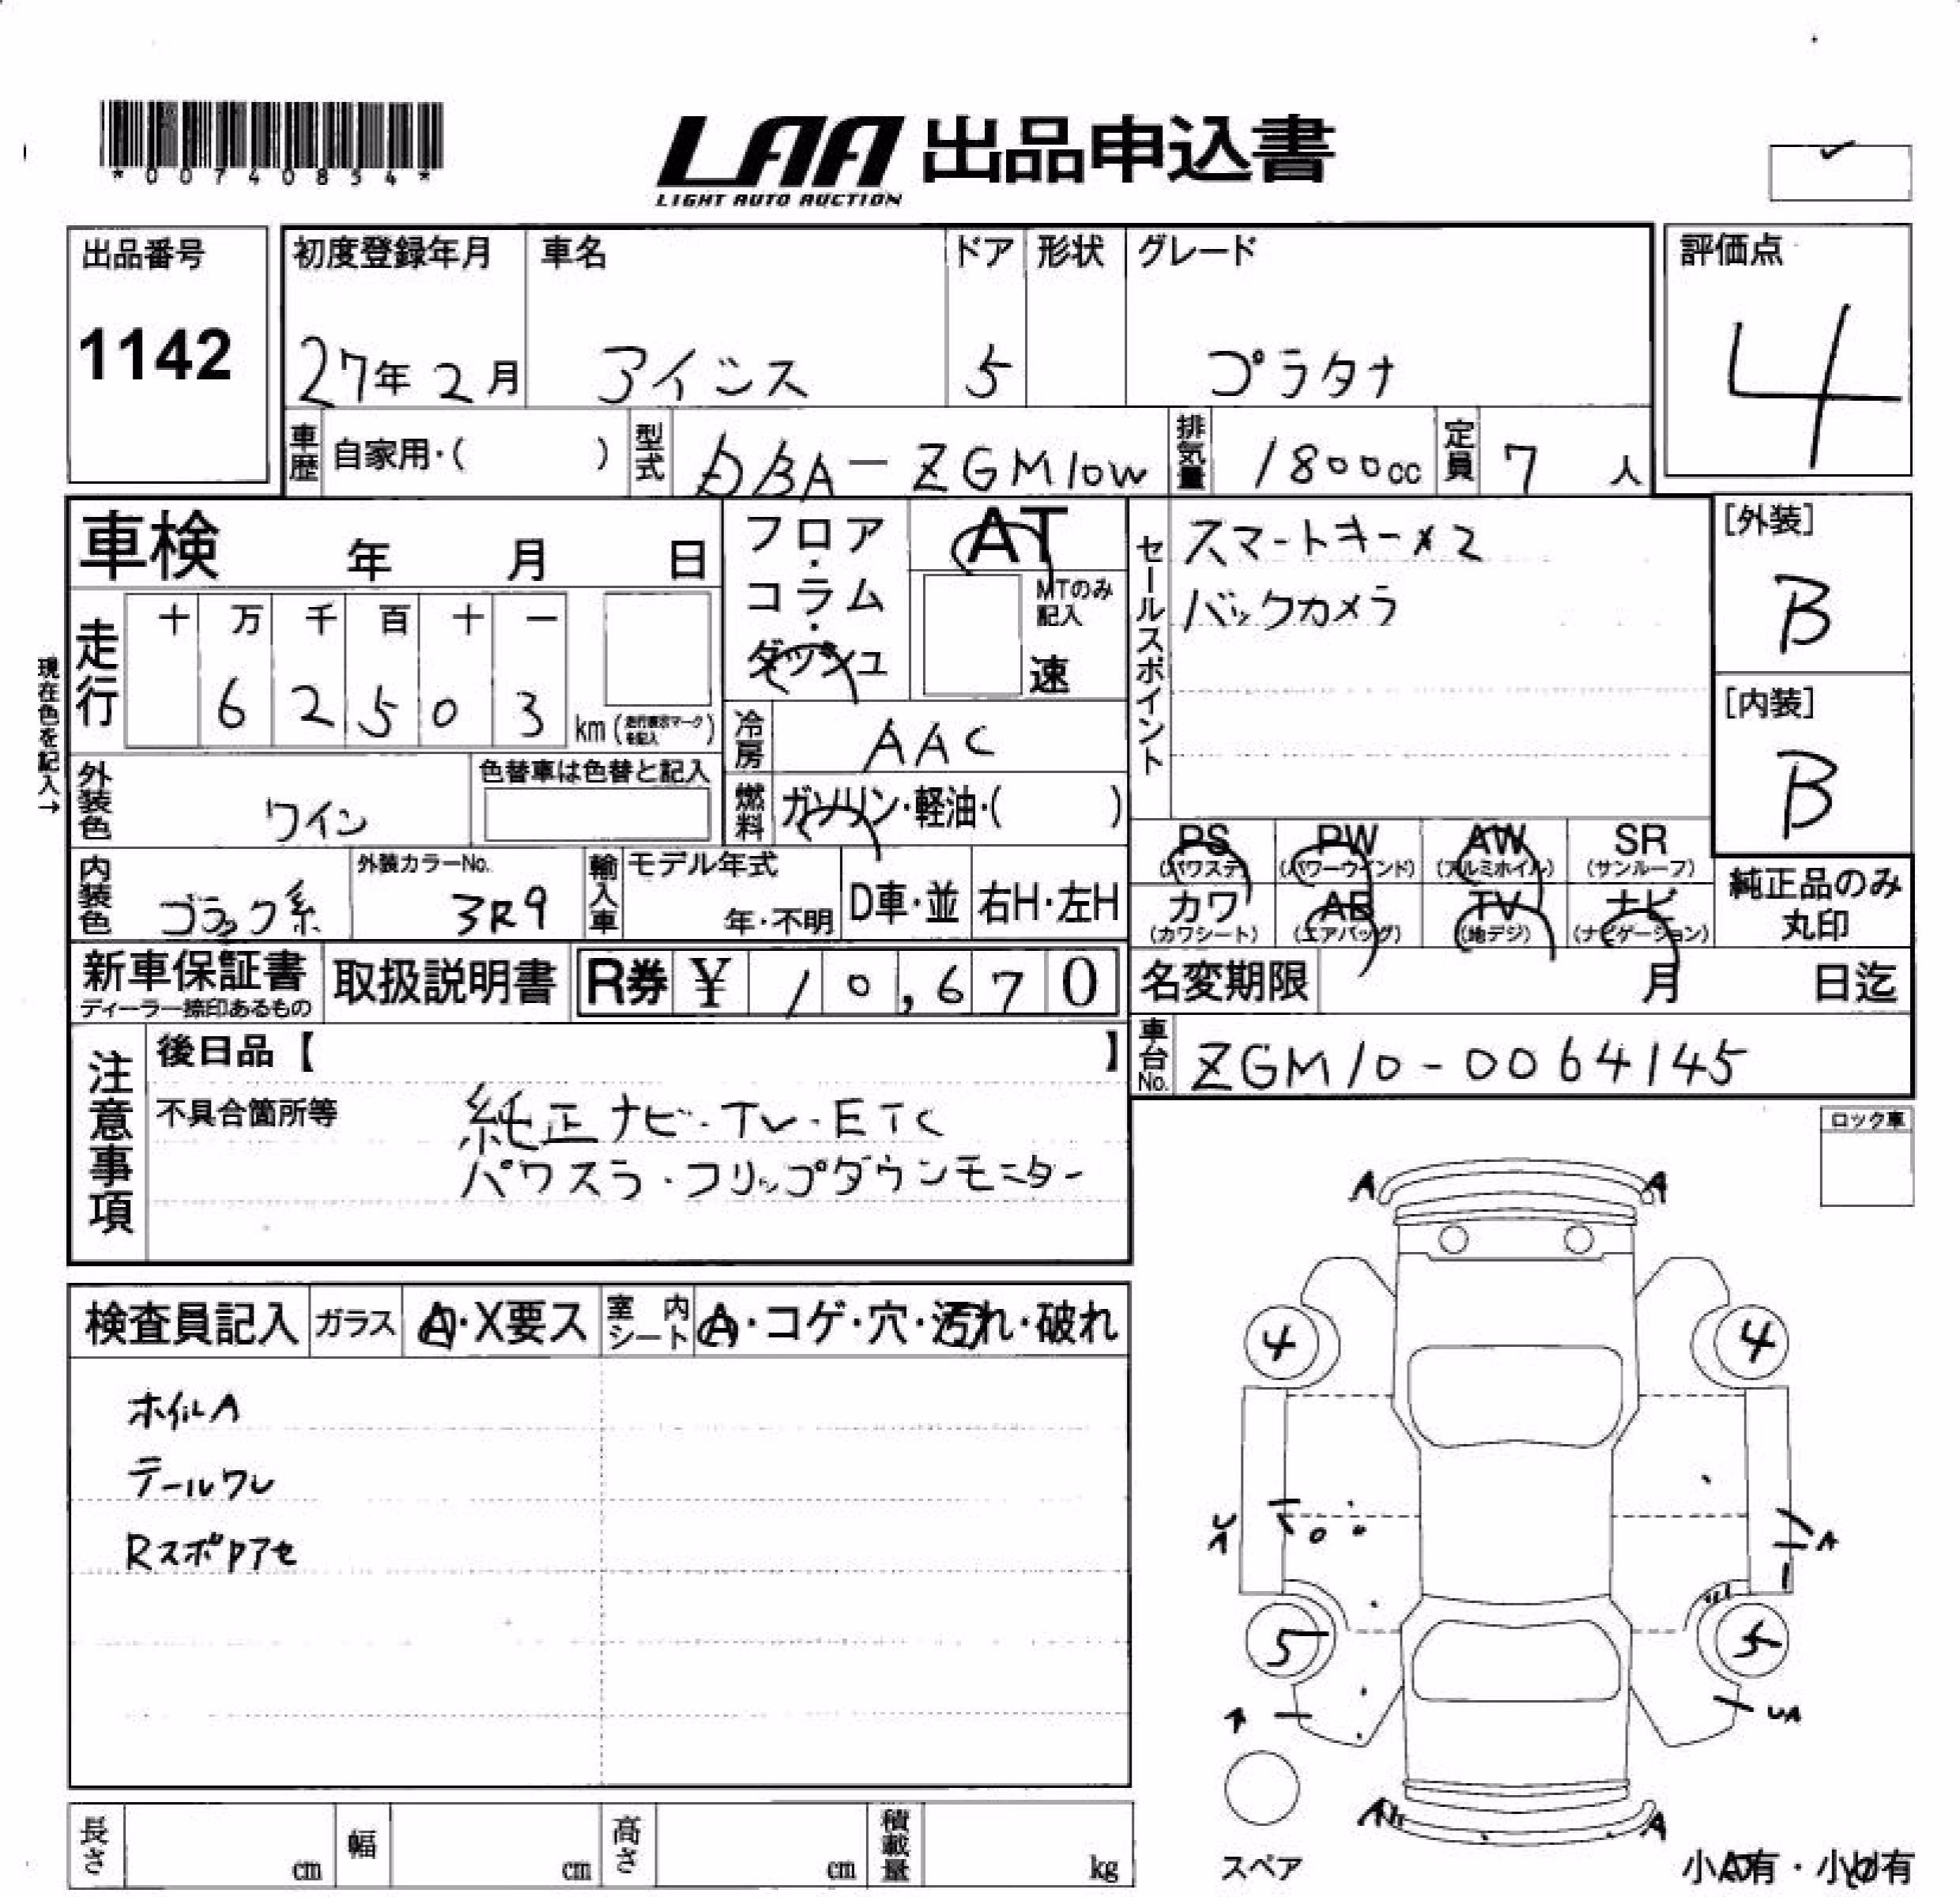 *00740854*
LAA 出品申込書
LIGHT AUTO AUCTION
出品番号
1142
初度登録年月
27年2月
車名
アイシス
ドア
5
形状
グレード
プラタナ
評価点
4
車歴 自家用・( )
型式 DBA-ZGM10W
排気量 1800cc
定員 7人
車検 年 月 日
フロア・コラム・ダッシュ
AT
MTのみ記入
速
セールスポイント
スマートキー×2
バックカメラ
[外装]
B
[内装]
B
現在色を記入→
走行
十 万 千 百 十 一
6 2 5 0 3 km (走行表示マークを記入)
冷房 AAC
外装色 ワイン
色替車は色替と記入
燃料 ガソリン・軽油・( )
PS (パワステ)
PW (パワーウインド)
AW (アルミホイル)
SR (サンルーフ)
カワ (カワシート)
AB (エアバッグ)
TV (地デジ)
ナビ (ナビゲーション)
純正品のみ丸印
内装色 ブラック系
外装カラーNo. 3R9
輸入車
モデル年式
年・不明
D車・並
右H・左H
新車保証書
ディーラー捺印あるもの
取扱説明書
R券 ¥ 10,670
名変期限 月 日迄
車台No. ZGM10-0064145
注意事項
後日品【 】
不具合箇所等
純正ナビ・TV・ETC
パワスラ・フリップダウンモニター
ロック車
検査員記入
ガラス A・X要ス
室内シート A・コゲ・穴・汚れ・破れ
ホイルA
テールワレ
A A
4 4
A
5 5
UA
A A
スペア
小A有・小U有
長さ cm
幅 cm
高さ cm
積載量 kg